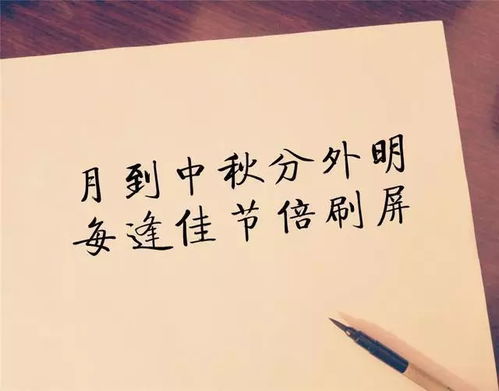 月到中秋分外明
每逢佳节倍刷屏